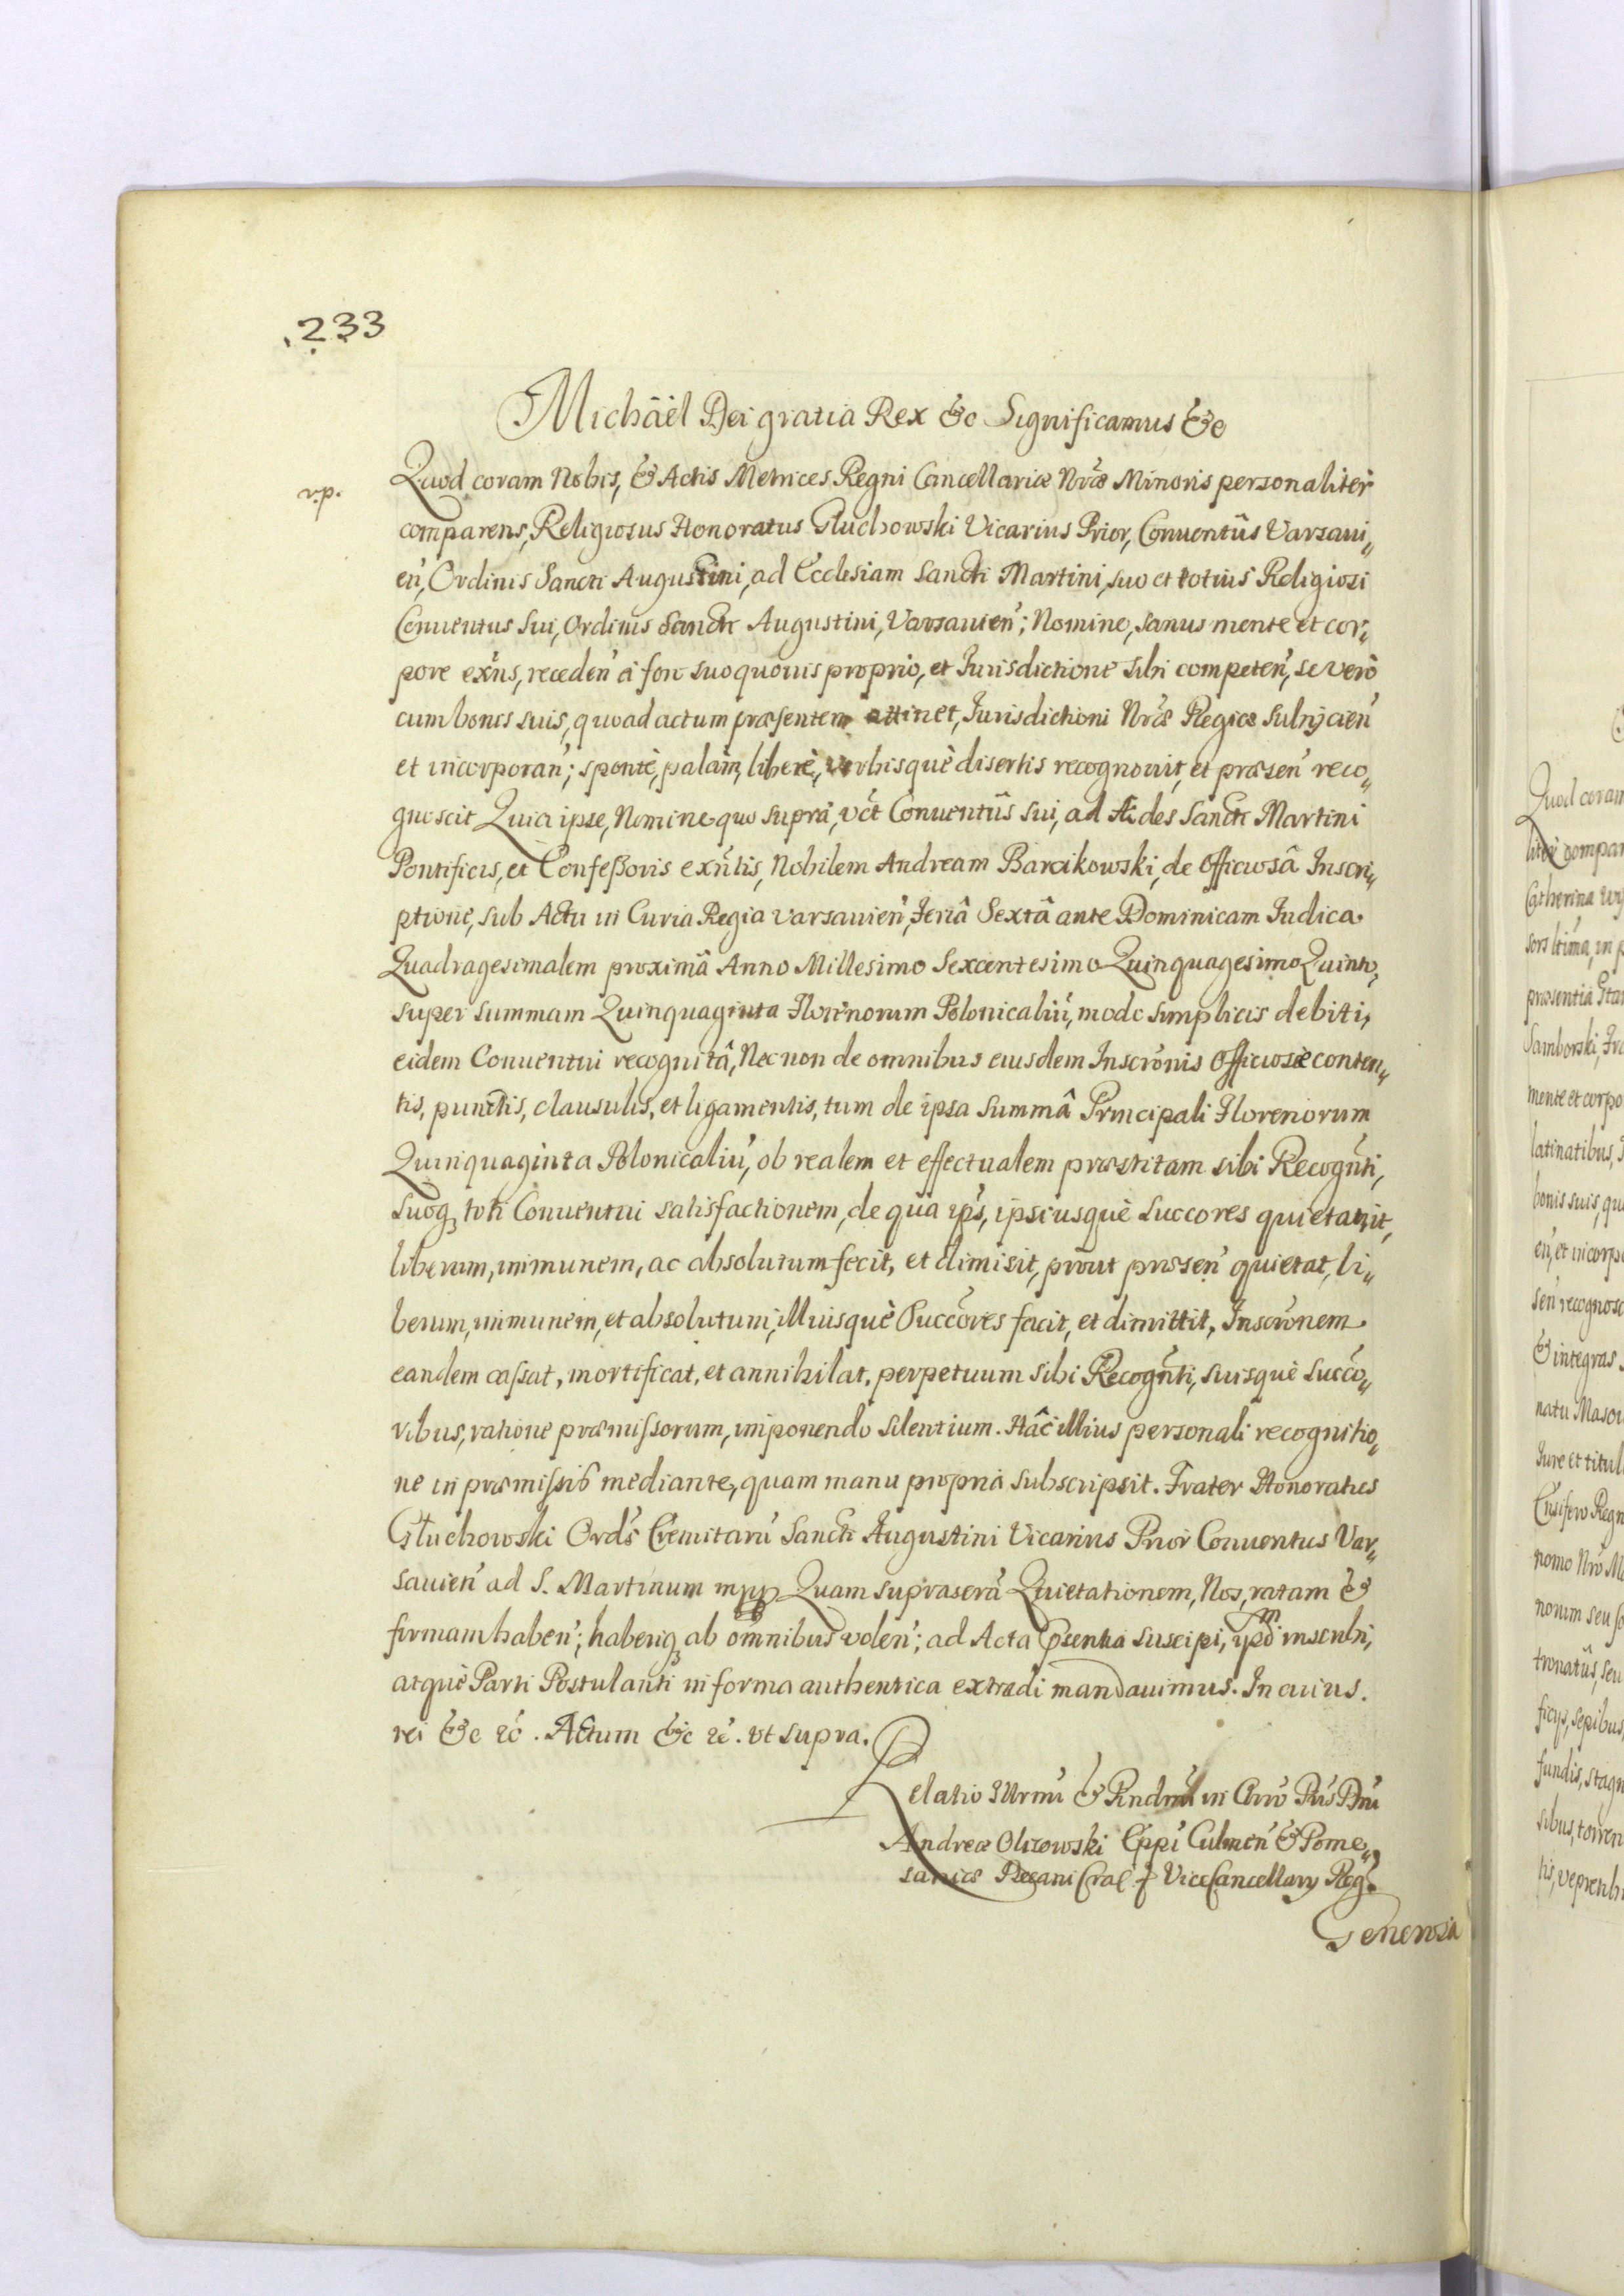 233
Michäèl Dei gratia Rex &c Significamus &c
v.p.
Quod coram Nobis, & Actis Metrices Regni Cancellariæ Nrãæ Minoris personaliter
comparens, Religiosus Honoratus Głuchowski Vicarius Prior, Conuentûs Varsaui„
eń, Ordinis Sancti Augustini, ad Ecclesiam Sancti Martini, suo et totius Religiosi
Conuentus sui, Ordinis Sancti Augustini, Varsauień; Nomine, sanus mente et cor„
pore exñs, receden̄ á foro suo quouis proprio, et Jurisdictione sibi competeń, se verò
cum bonis suis, quoad actum præsentem attinet, Jurisdictioni Nrãæ Regiæ subijcień
et incorporań; spontè, palàm, liberè, verbisquè disertis recognouit, et præseń reco„
gnoscit Quia ipse, Nomine quo suprà, vct̃ Conuentûs sui, ad Ædes Sancti Martini
Pontificis, et Confeßoris exñtis, Nobilem Andream Barcikowski, de Officiosâ Inscri„
ptione, sub Actu in Curia Regia Varsauień, Feriâ Sextâ ante Dominicam Judica
Quadragesimalem proximâ Anno Millesimo Sexcentesimo Quinquagesimo Quinto,
super summam Quinquaginta Florenorum Polonicaliū, modo simplicis debiti,
eidem Conuentui recognitâ, Nec non de omnibus eiusdem Inscrōnis Officiosæ conten„
tis, punctis, clausulis, et ligamentis, tum de ipsa summâ Principali Florenorum
Quinquaginta Polonicaliū, ob realem et effectualem præstitam sibi Recogñti,
suoq₃ toti Conuentui satisfactionem, de quâ ips̃, ipsiusquè Succores quietauit,
liberum, immunem, ac absolutum fecit, et dimisit, prout præseń quietat, li„
berum, immunem, et absolutum, illiusquè Succōres facit, et dimittit, Inscrōnem
eandem caſsat, mortificat, et annihilat, perpetuum sibi Recogñti, suisquè Succo„
ribus, ratione præmiſsorum, imponendo silentium. Hâc illius personali recognitio„
ne in præmiſsis mediante, quam manu propria subscripsit. Frater Honoratus
Głuchowski Ord̃s Eremitarū Sancti Augustini Vicarius Prior Conuentus Var„
sauień ad S. Martinum mpp Quam suprascrã Quietationem, Nos, ratam &
firmam habeń; haberiq₃ ab omnibus voleń; ad Acta p̃sentia suscipi, ip̃dm inscribi,
atquè Parti Postulanti in forma authentica extradi mandauimus. In cuius
rei &c &c. Actum &c &c. vt supra.
Relatio Illrm̃i & Rndm̃i in Chrõ Pñs Dñi
Andreæ Olszowski Epp̃i Culmeń & Pome„
saniæ Decani Crac & ViceCancellarij Reg̃.
Generosa